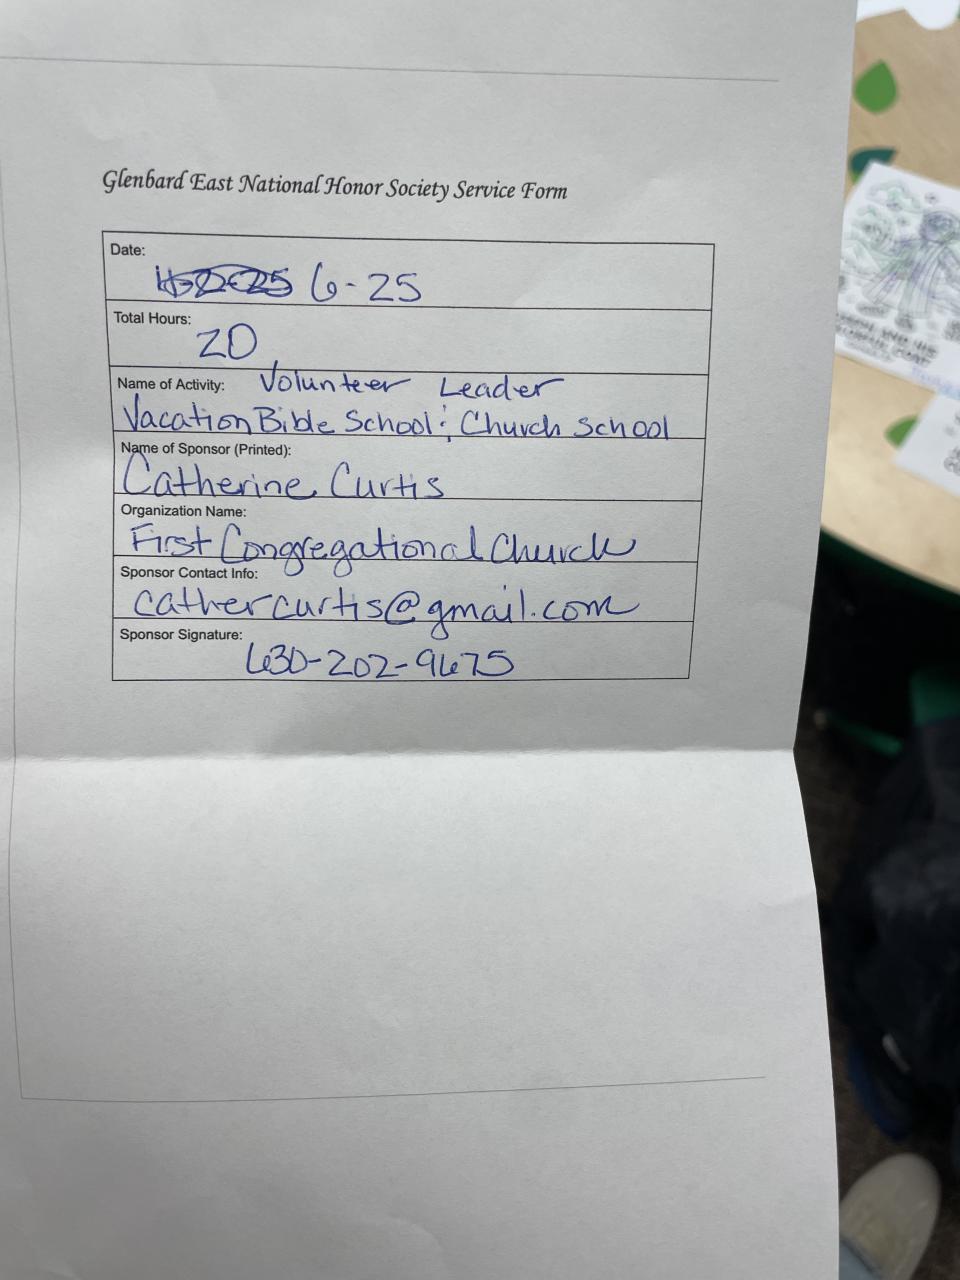 Glenbard East National Honor Society Service Form
Date:
6-25
Total Hours:
20
Name of Activity: Volunteer Leader
Vacation Bible School & Church School
Name of Sponsor (Printed):
Catherine Curtis
Organization Name:
First Congregational Church
Sponsor Contact Info:
cathercurtis@gmail.com
Sponsor Signature:
630-202-9675